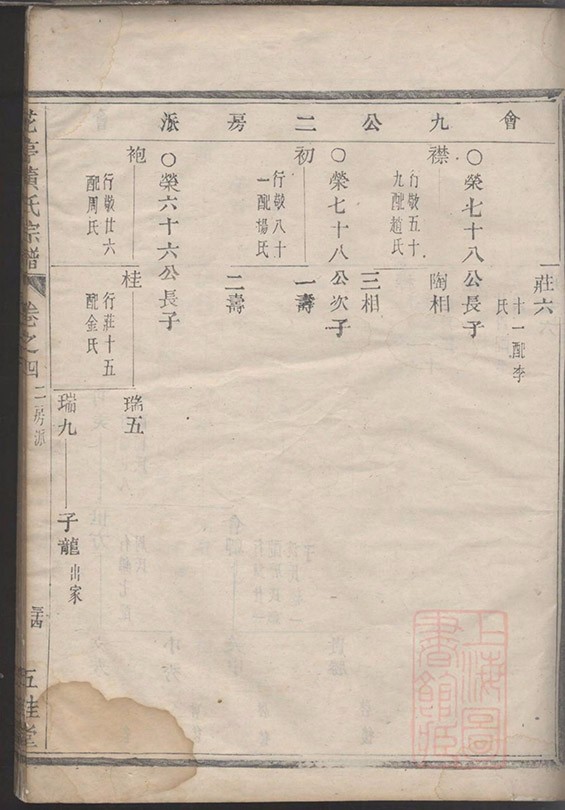 會九公二房派
莊六
十一配李
氏
○榮七十八公長子
襟
行敬五十
九配趙氏
陶相
三相
○榮七十八公次子
初
行敬八十
一配楊氏
一壽
二壽
○榮六十六公長子
袍
行敬廿六
配周氏
桂
行莊十五
配金氏
瑞五
瑞九
子龍
出家
黄氏宗譜
卷之四
二房派
五桂堂
上海圖
書館藏